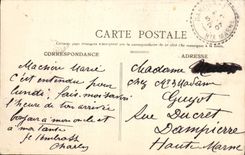 CARTE POSTALE
CORRESPONDANCE
ADRESSE
Ma chère Marie
c'est entendu pour
lundi, fais-moi savoir
l'heure de ton arrivée
bonjour à mon oncle et à
ma tante
je t'embrasse
Charles
Madame
chez Mr & Madame
Guyot
Rue Ducret
Dampierre
Haute Marne